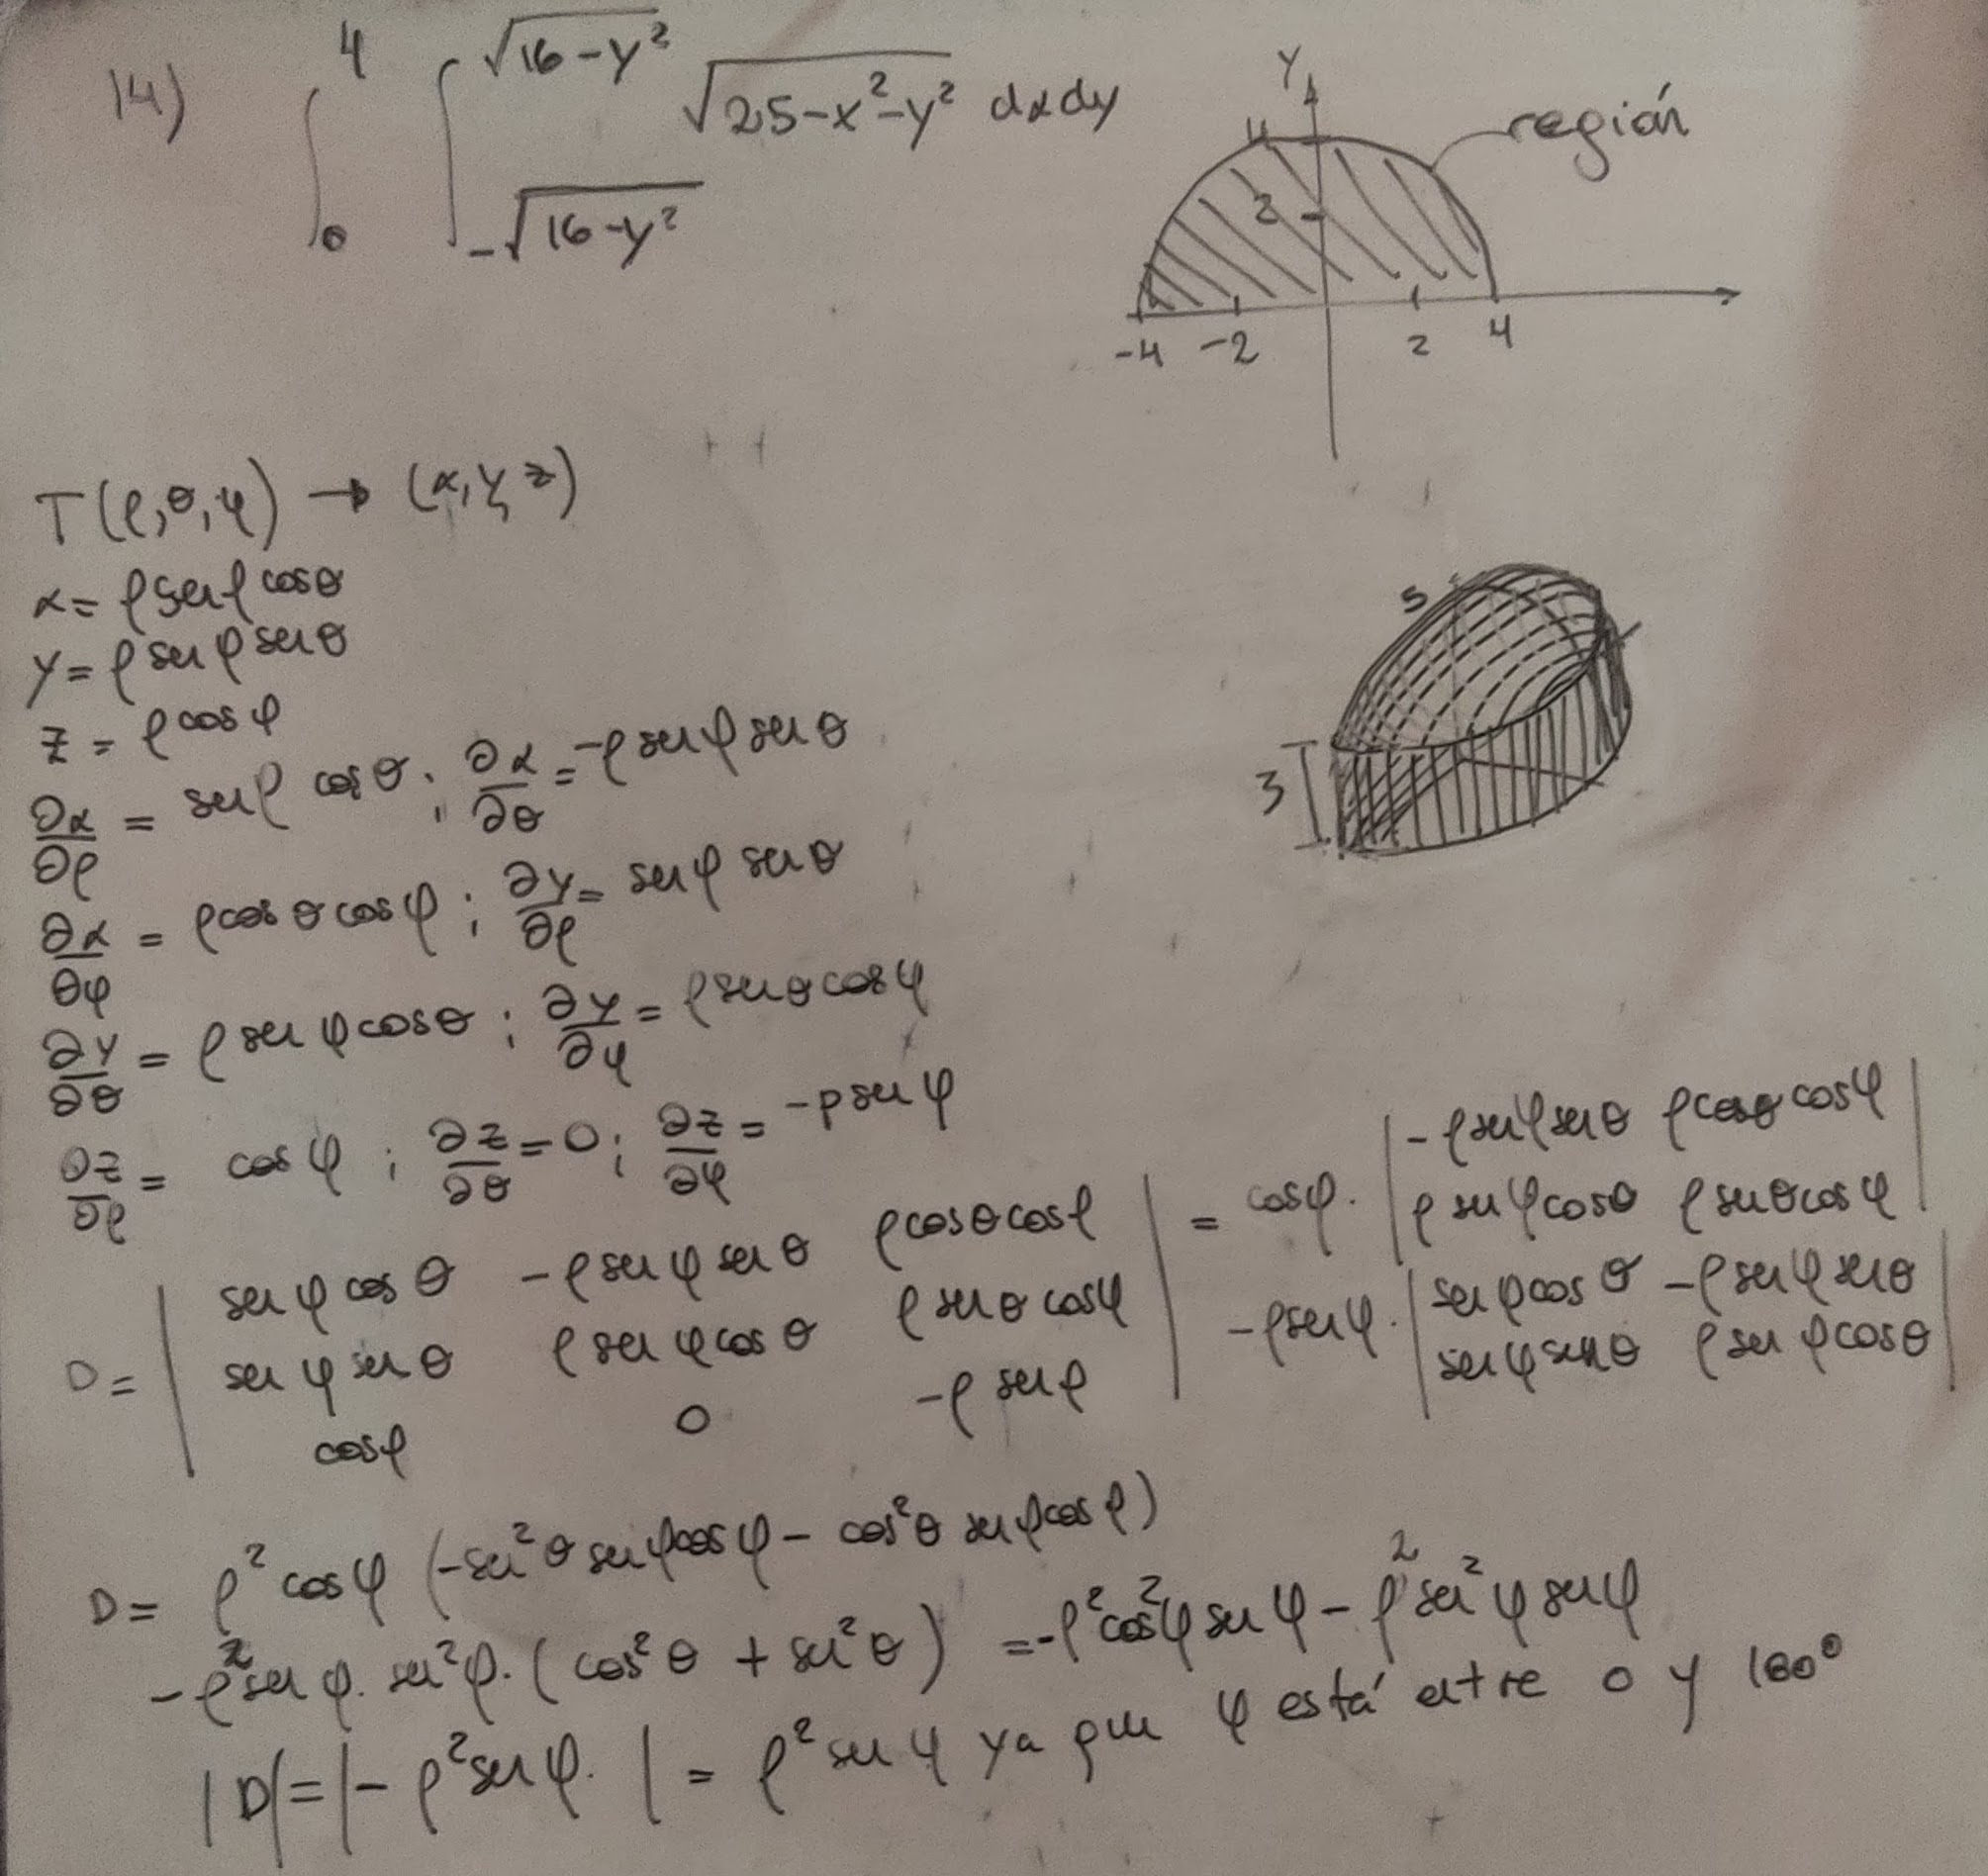 14) ∫₀⁴ ∫_{-√(16-y²)}^{√(16-y²)} √(25-x²-y²) dxdy
Y
4
región
2
-4 -2 2 4
T(ρ,θ,φ) → (x,y,z)
x = ρ senφ cosθ
y = ρ senφ senθ
z = ρ cosφ
5
3
∂x/∂ρ = senφ cosθ ; ∂x/∂θ = -ρ senφ senθ
∂x/∂φ = ρ cosθ cosφ ; ∂y/∂ρ = senφ senθ
∂y/∂θ = ρ senφ cosθ ; ∂y/∂φ = ρ senθ cosφ
∂z/∂ρ = cosφ ; ∂z/∂θ = 0 ; ∂z/∂φ = -ρ senφ
D = | senφ cosθ -ρ senφ senθ ρ cosθ cosφ |
| senφ senθ ρ senφ cosθ ρ senθ cosφ |
| cosφ 0 -ρ senφ |
= cosφ · | -ρ senφ senθ ρ cosθ cosφ |
| ρ senφ cosθ ρ senθ cosφ |
-ρ senφ · | senφ cosθ -ρ senφ senθ |
| senφ senθ ρ senφ cosθ |
D = ρ² cosφ (-sen²θ senφ cosφ - cos²θ senφ cosφ)
-ρ² senφ · sen²φ · (cos²θ + sen²θ) = -ρ² cos²φ senφ - ρ² sen²φ senφ
|D| = |-ρ² senφ · | = ρ² senφ ya que φ está entre 0 y 180°